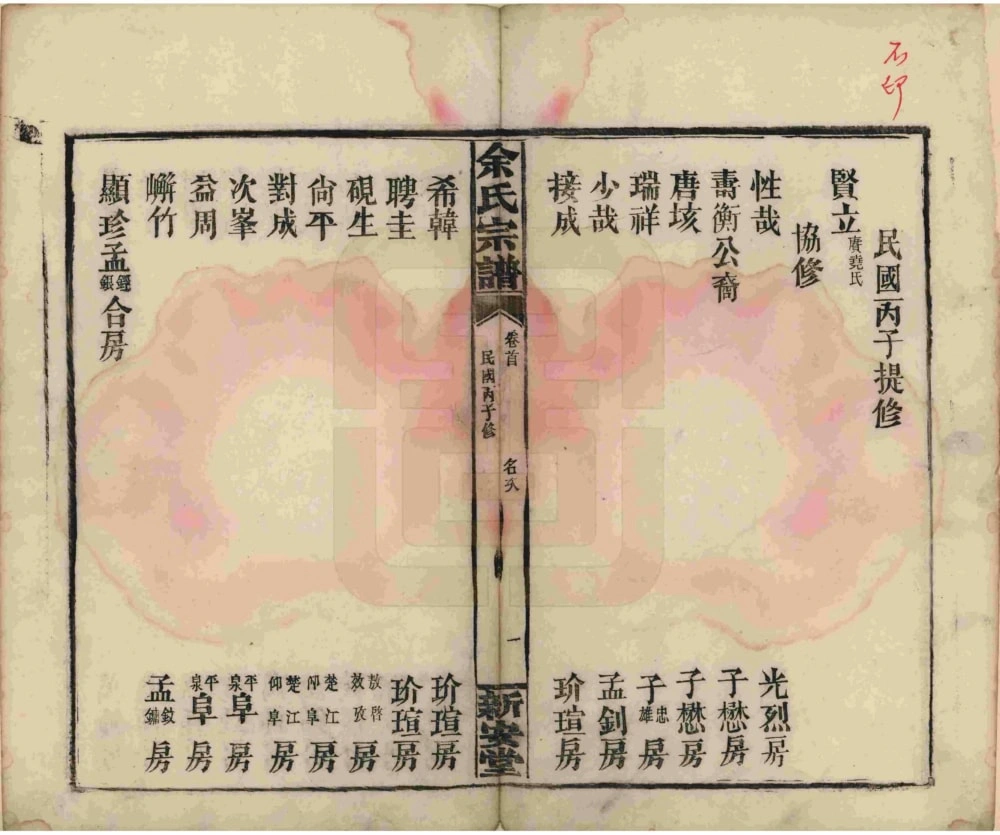 石印
民國丙子提修
賢立廣堯氏
協修
性哉 光烈房
壽衡公裔 子懋房
唐垓 子懋房
瑞祥 子忠雄房
少哉 孟釗房
接成 玠瑄房
余氏宗譜 卷首 民國丙子修 名次 一 新安堂
希韓 玠瑄房
聘圭 玠瑄房
硯生 敖啓效孜房
尙平 楚江仰阜房
對成 楚江仰阜房
次峯 平泉阜房
益周 平泉阜房
嶰竹 孟鏽房
顯珍孟合房